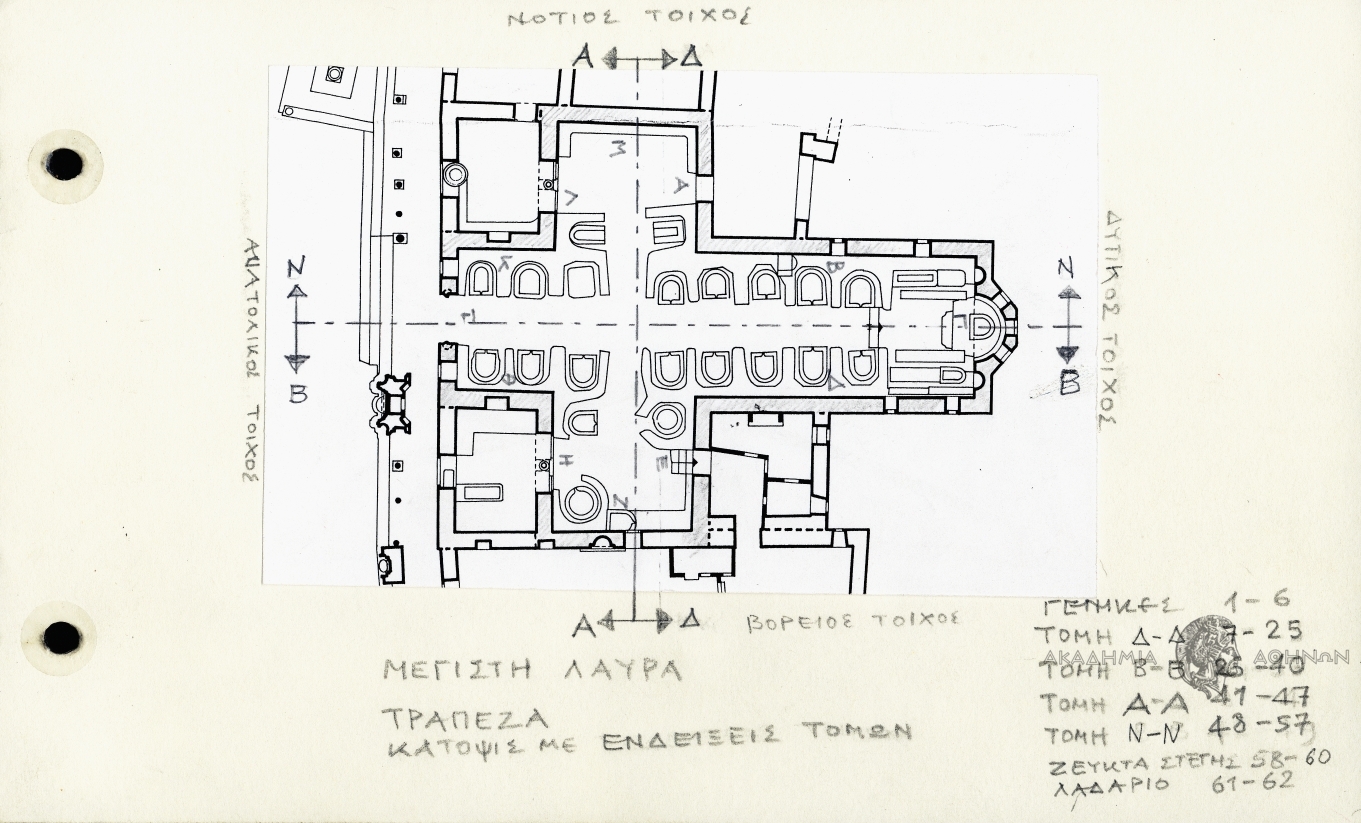 ΝΟΤΙΟΣ ΤΟΙΧΟΣ
Α Δ
Μ
Λ
Α
Κ
Β
Ν
Ν
ΑΝΑΤΟΛΙΚΟΣ ΤΟΙΧΟΣ
ΔΥΤΙΚΟΣ ΤΟΙΧΟΣ
Ι
Γ
Β
Β
Θ
Δ
Η
Ε
Ζ
Α Δ
ΒΟΡΕΙΟΣ ΤΟΙΧΟΣ
ΜΕΓΙΣΤΗ ΛΑΥΡΑ
ΤΡΑΠΕΖΑ
ΚΑΤΟΨΙΣ ΜΕ ΕΝΔΕΙΞΕΙΣ ΤΟΜΩΝ
ΓΕΝΙΚΕΣ 1-6
ΤΟΜΗ Δ-Δ 7-25
ΑΚΑΔΗΜΙΑ ΑΘΗΝΩΝ
ΤΟΜΗ Β-Β 26-40
ΤΟΜΗ Α-Α 41-47
ΤΟΜΗ Ν-Ν 48-57
ΖΕΥΚΤΑ ΣΤΕΓΗΣ 58-60
ΛΑΔΑΡΙΟ 61-62